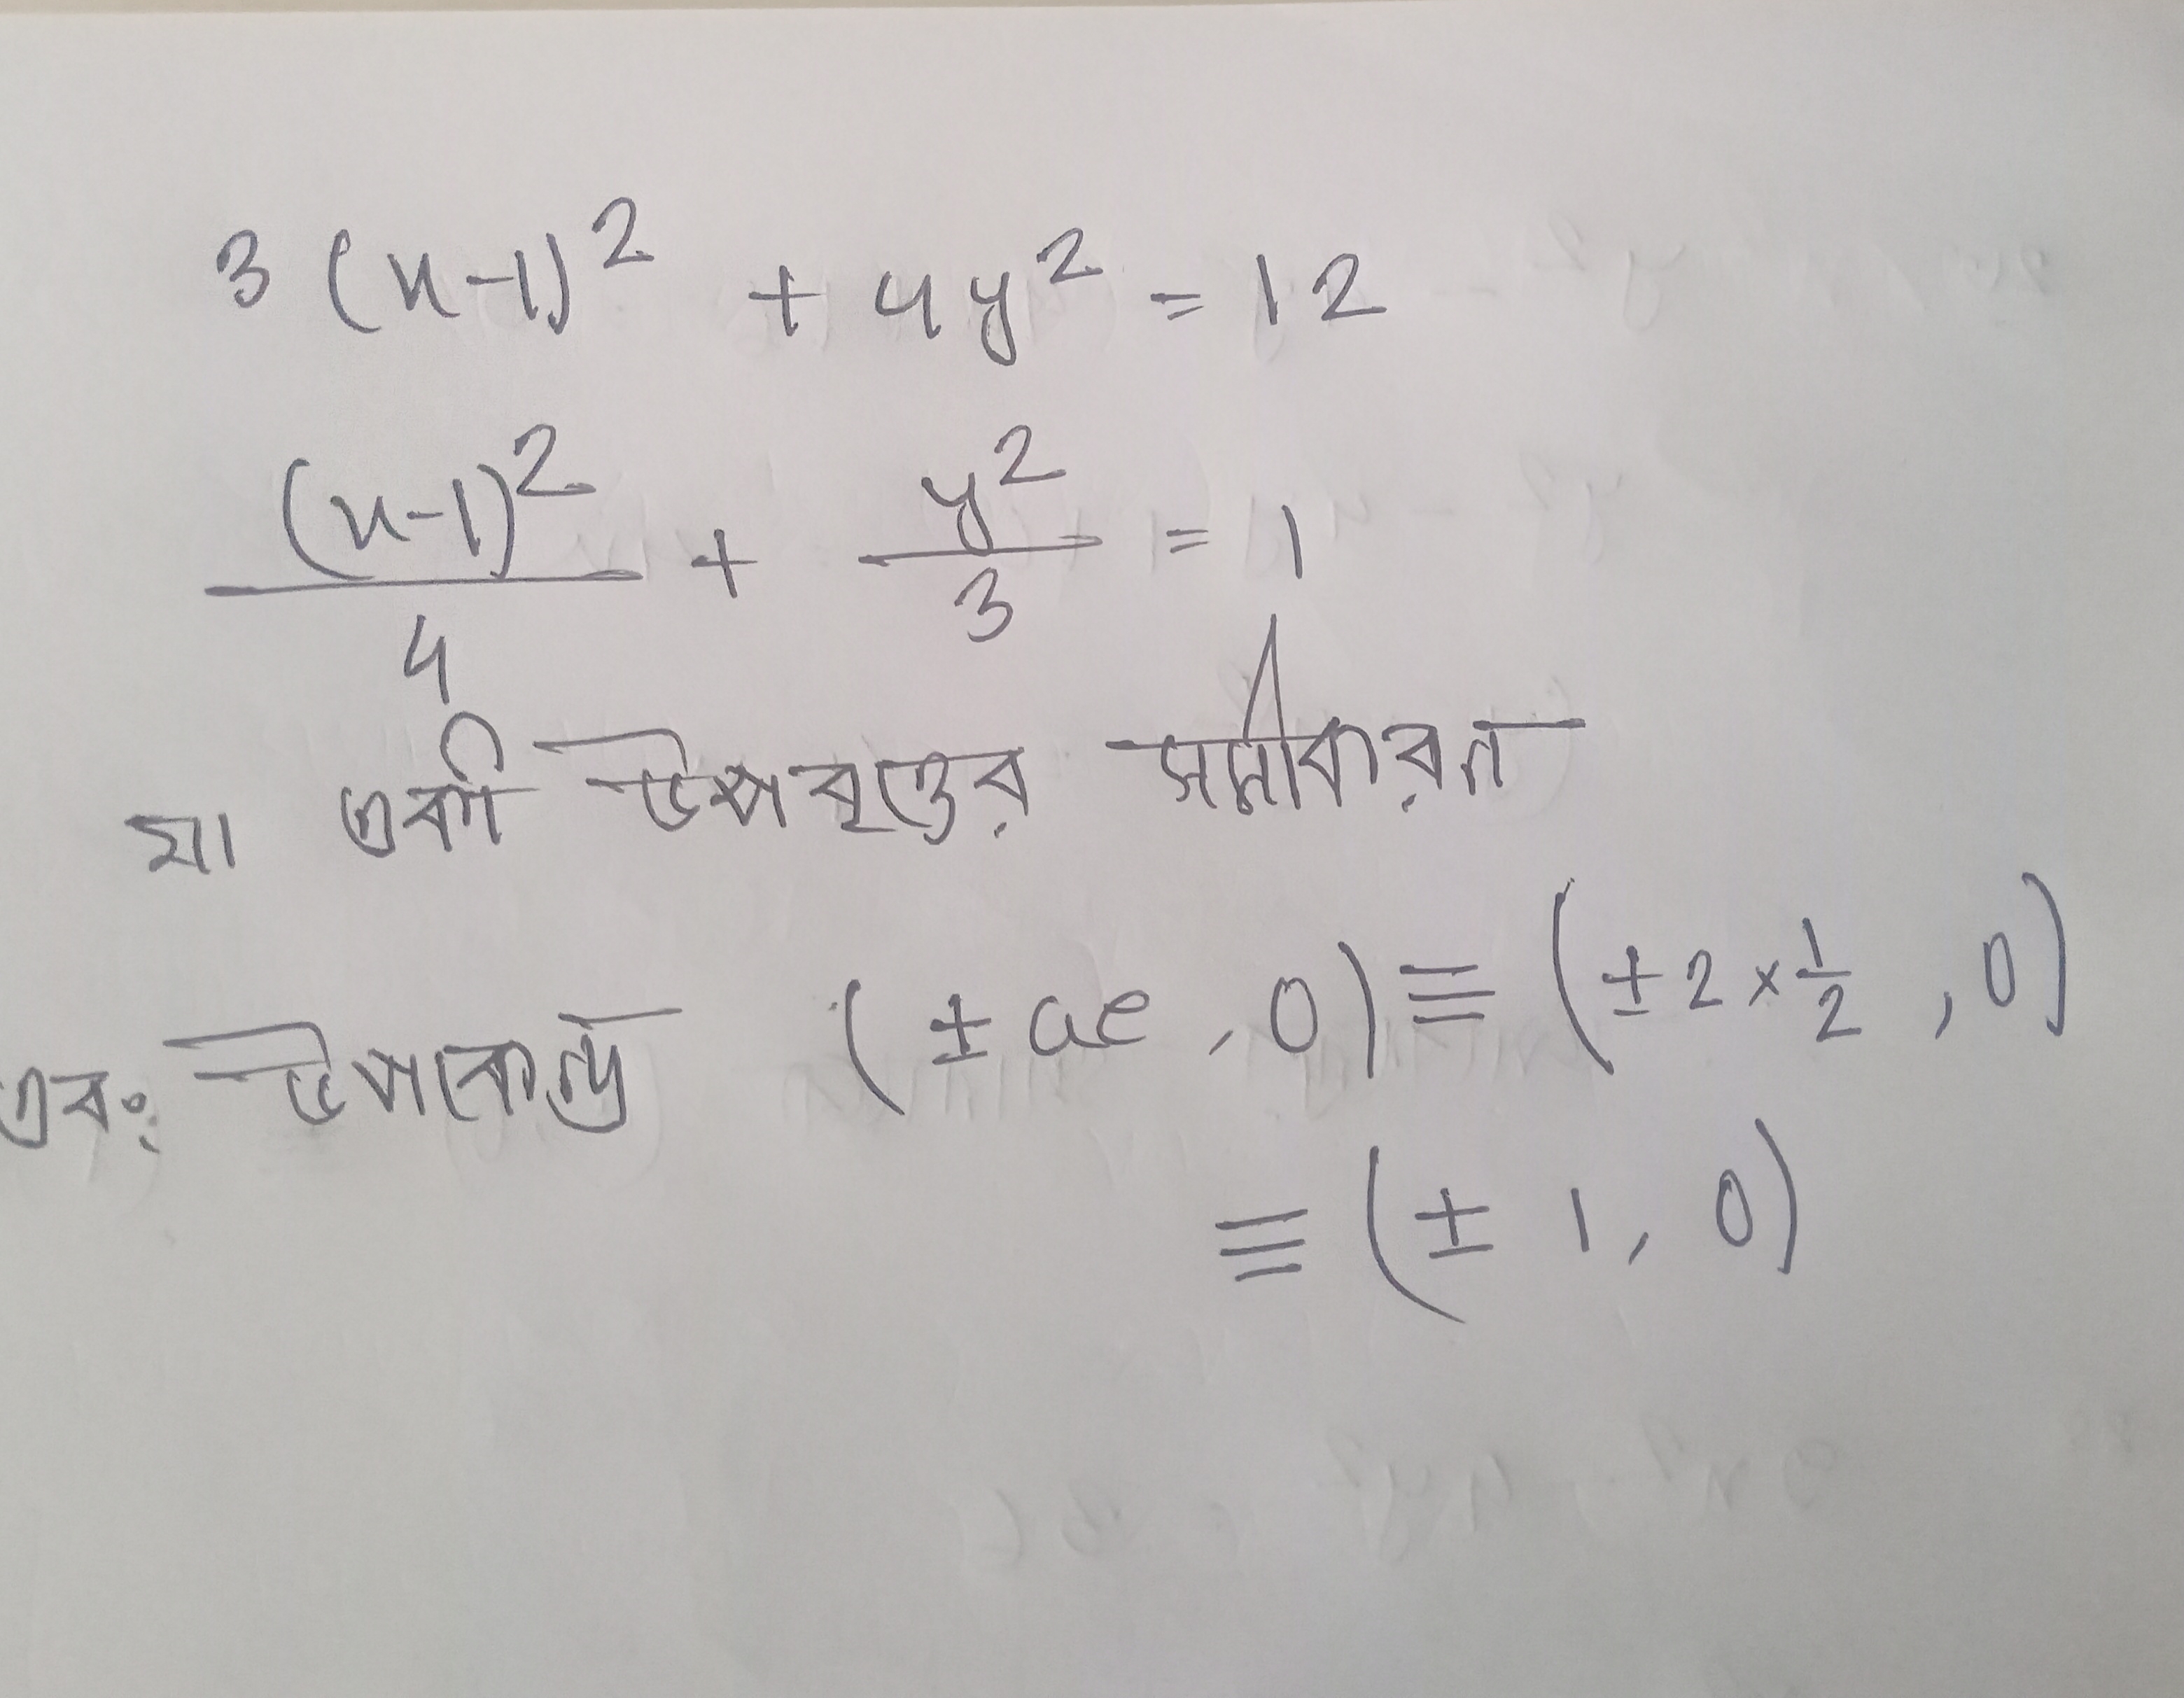 3 (x-1)² + 4y² = 12
(x-1)²/4 + y²/3 = 1
যা একটি উপবৃত্তের সমীকরন
এবং উপকেন্দ্র (± ae, 0) ≡ (± 2 × 1/2, 0)
≡ (± 1, 0)